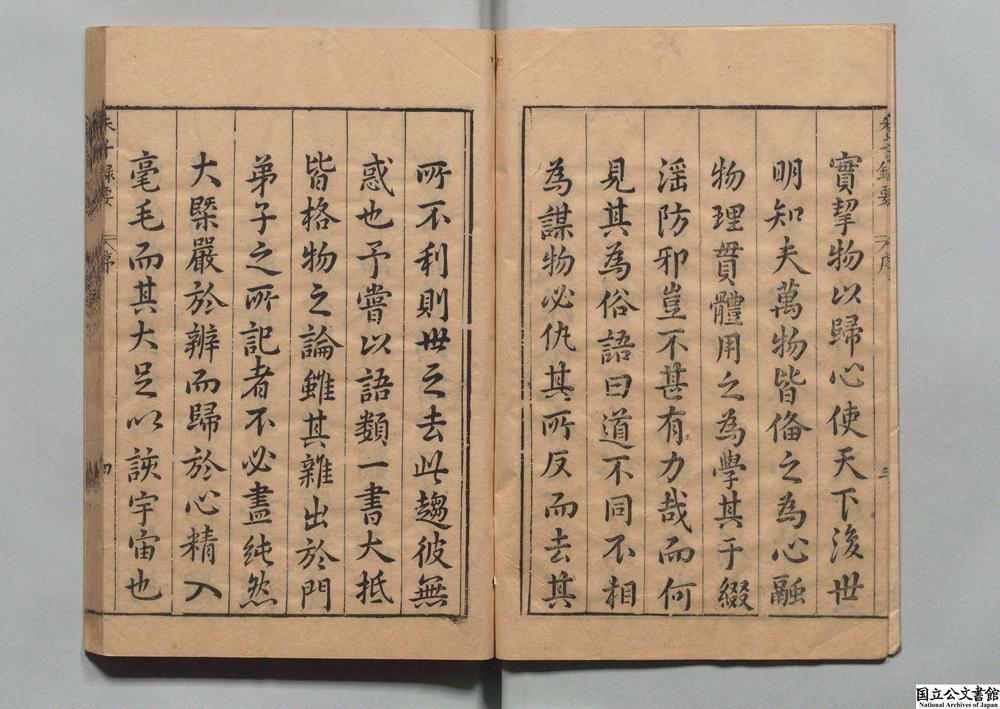 實挈物以歸心使天下後世
明知夫萬物皆俻之為心融
物理貫體用之為學其于綴
滛防邪豈不甚有力哉而何
見其為俗語曰道不同不相
為謀物必仇其所反而去其
所不利則世之去此趨彼無
惑也予嘗以語類一書大抵
皆格物之論雖其雜出於門
弟子之所記者不必盡純然
大槩嚴於辨而歸於心精入
毫毛而其大足以該宇宙也
朱子錄要
序
三
朱子錄要
序
四
国立公文書館
National Archives of Japan